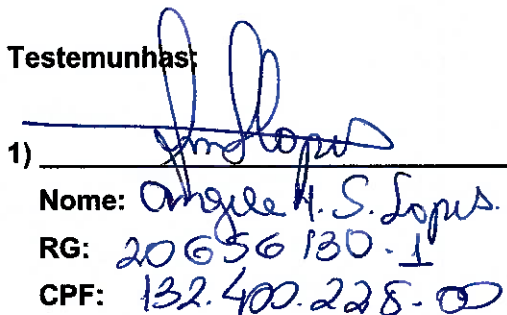 Testemunhas:
1)
Nome: Angela H. S. Lopes.
RG: 20656130-1
CPF: 132.400.228-00